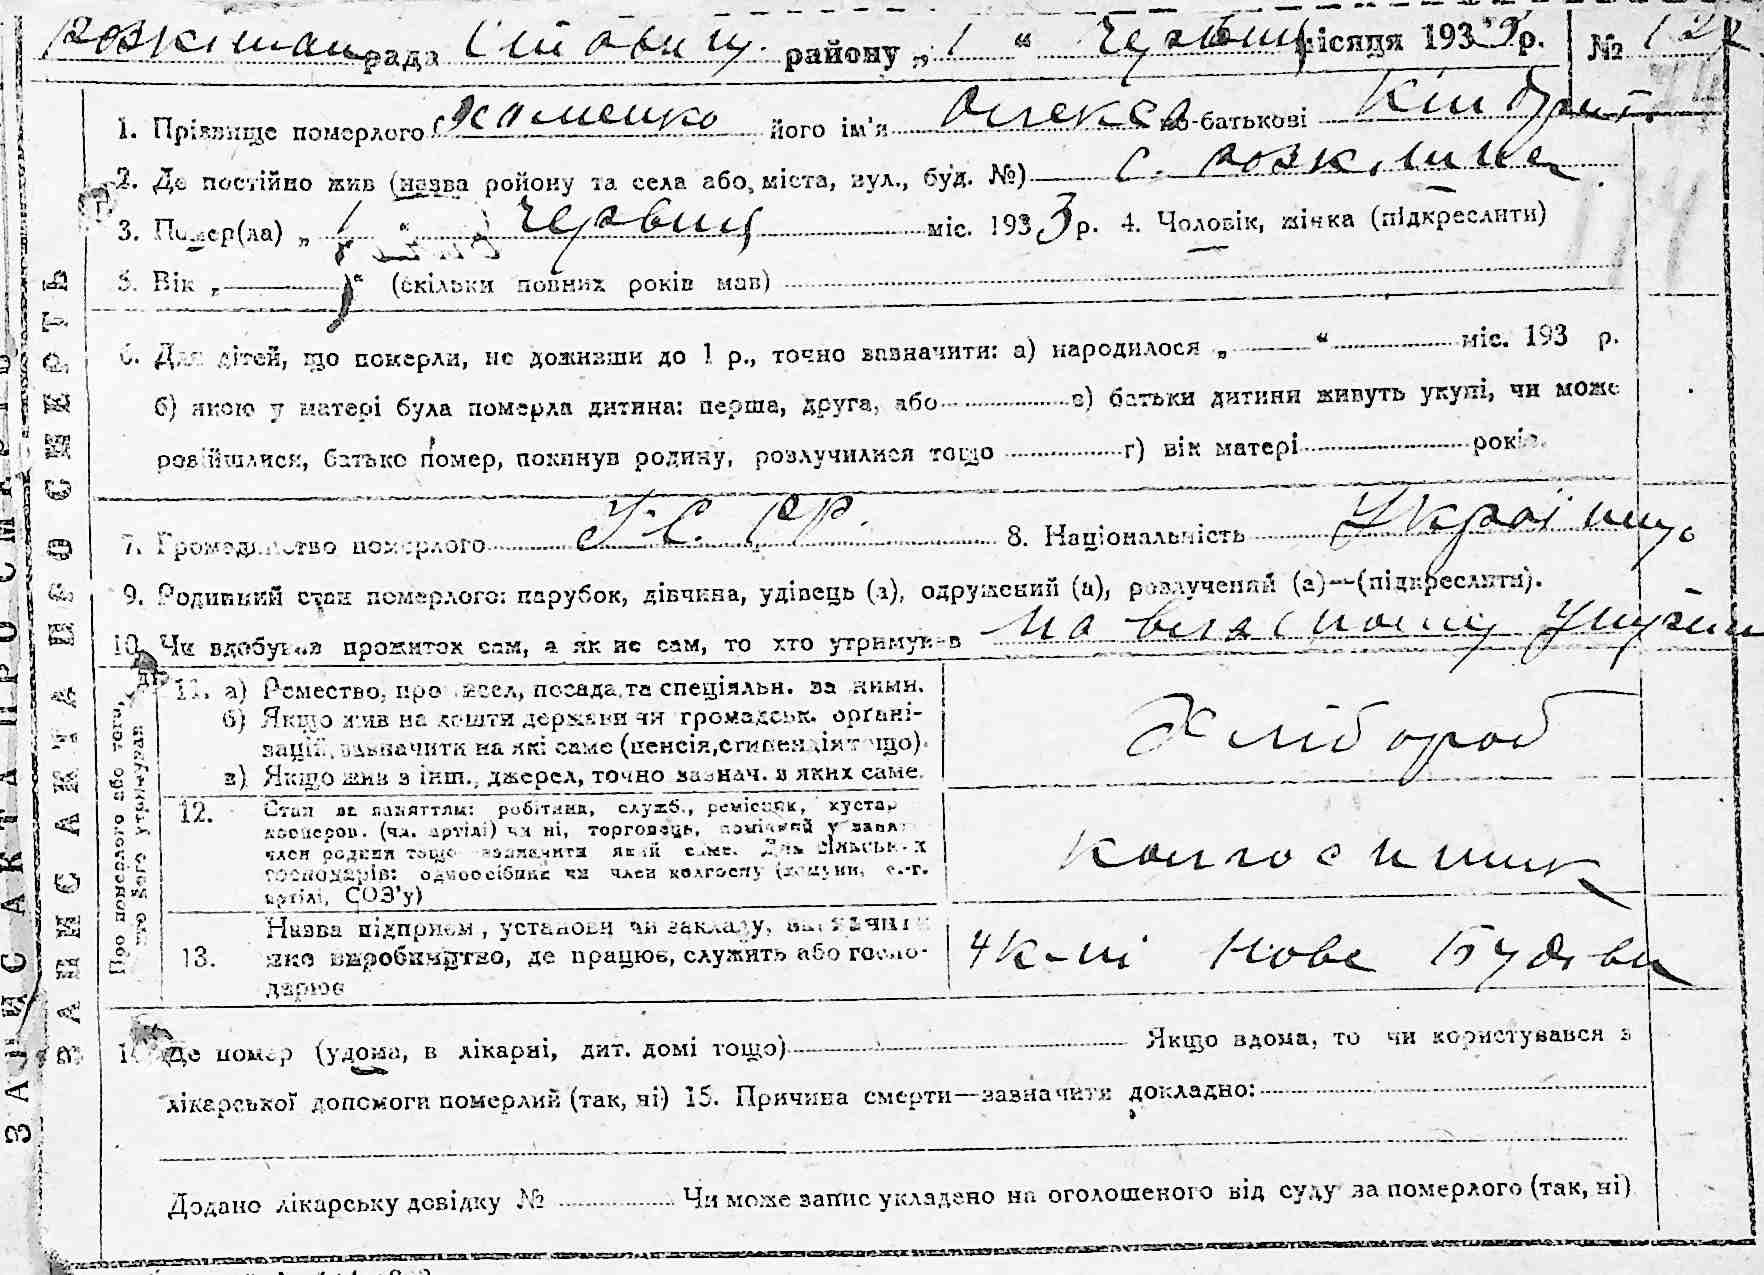 рада району „ 1 “ Червня місяця 1933 р. №
1. Прізвище померлого його ім'я Олекса по-батькові Кіндрат.
2. Де постійно жив (назва ройону та села або, міста, вул., буд. №) с.
3. Помер(ла) „ 1 “ Червня міс. 1933 р. 4. Чоловік, жінка (підкреслити)
5. Вік „ “ (скільки повних років мав)
6. Для дітей, що померли, не доживши до 1 р., точно зазначити: а) народилося „ “ міс. 193 р.
б) якою у матері була померла дитина: перша, друга, або в) батьки дитини живуть укупі, чи може
розійшлися, батько помер, покинув родину, розлучилися тощо г) вік матері років.
7. Громадянство померлого У.С.РР. 8. Національність
9. Родинний стан померлого: парубок, дівчина, удівець (а), одружений (а), розлучений (а)—(підкреслити).
10. Чи здобував прожиток сам, а як не сам, то хто утримував На власному
Про померлого або того, що його утримував
11. а) Ремество, промисел, посада та спеціяльн. за ними.
б) Якщо жив на кошти держави чи громадськ. органі-
зацій, зазначити на які саме (пенсія, стипендія тощо).
в) Якщо жив з інш. джерел, точно зазнач. з яких саме.
Хлібороб
12. Стан за заняттям: робітник, служб., ремісник, кустар
кооперов. (чл. артілі) чи ні, торговець,
член родини тощо зазначити який саме. Для сільських
господарів: одноосібник чи член колгоспу (комуни, с.-г.
артілі, СОЗ'у)
колгоспник
13. Назва підприєм, установи чи закладу, зазначити
яке виробництво, де працює, служить або госпо-
дарює
Нове
14. Де помер (удома, в лікарні, дит. домі тощо) Якщо вдома, то чи користувався з
лікарської допомоги померлий (так, ні) 15. Причина смерти—зазначити докладно:
Додано лікарську довідку № Чи може запис укладено на оголошеного від суду за померлого (так, ні)
ЗАПИС АКТА ПРО СМЕРТЬ
ЗАПИС АКТА ПРО СМЕРТЬ